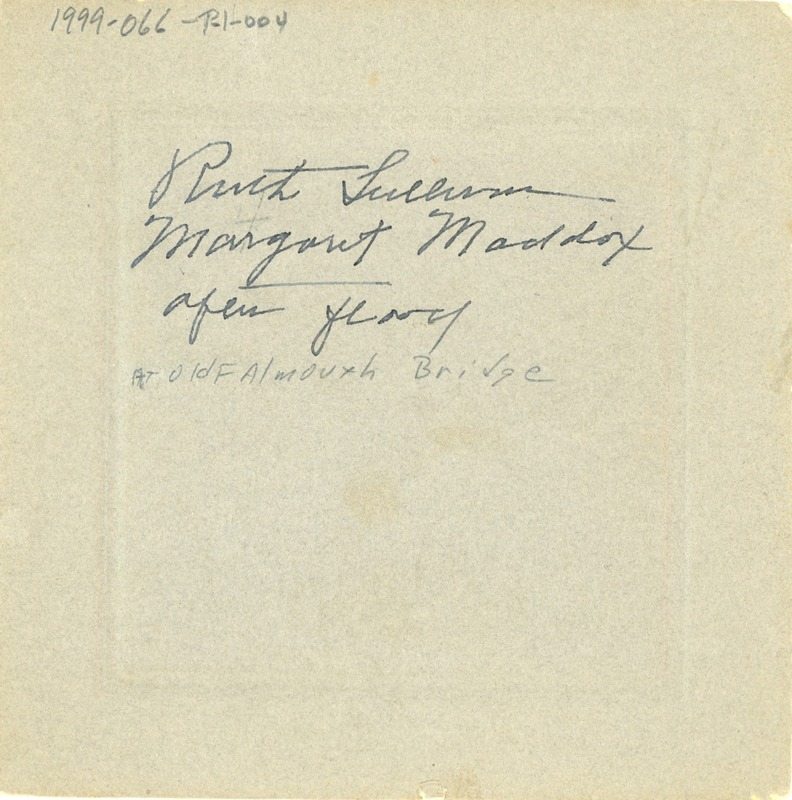 1999-066-P.1-004
Ruth Sullivan
Margaret Maddox
after flood
AT old FAlmouth Bridge